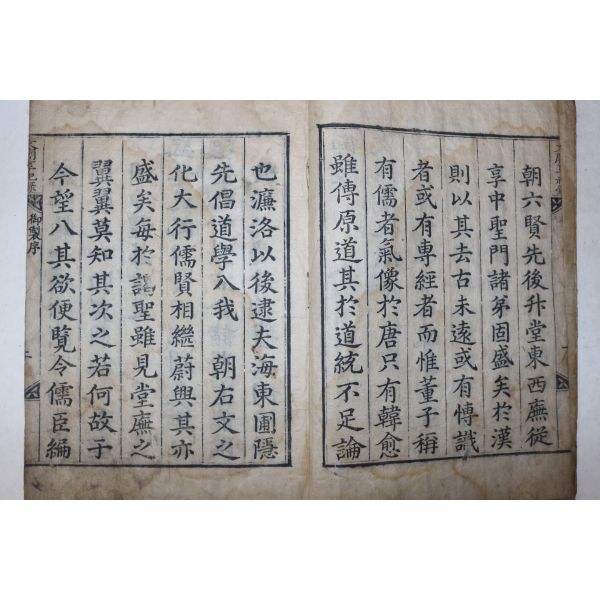 朝六賢先後升堂東西廡從
享中聖門諸弟固盛矣於漢
則以其去古未遠或有傳識
者或有專經者而惟董子稱
有儒者氣像於唐只有韓愈
雖傳原道其於道統不足論
也濂洛以後逮夫海東圃隱
先倡道學入我 朝右文之
化大行儒賢相繼蔚興其亦
盛矣每於謁聖雖見堂廡之
翼翼莫知其次之若何故予
今望八其欲便覽令儒臣編
御製序
一